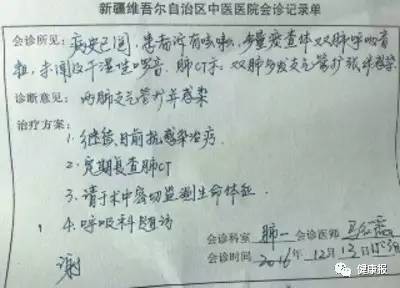 新疆维吾尔自治区中医医院会诊记录单
会诊所见：病史已阅，患者诉有咳嗽，少量痰查体双肺呼吸音
粗，未闻及干湿性啰音。肺CT示：双肺多发支气管扩张伴感染
诊断意见：两肺支气管扩张并感染
治疗方案：
1.继续目前抗感染治疗
2.定期复查肺CT
3.请于术中密切监测生命体征
4.呼吸科随访
谢
会诊科室 肺一 会诊医师
会诊时间 2016年12月13日
健康报